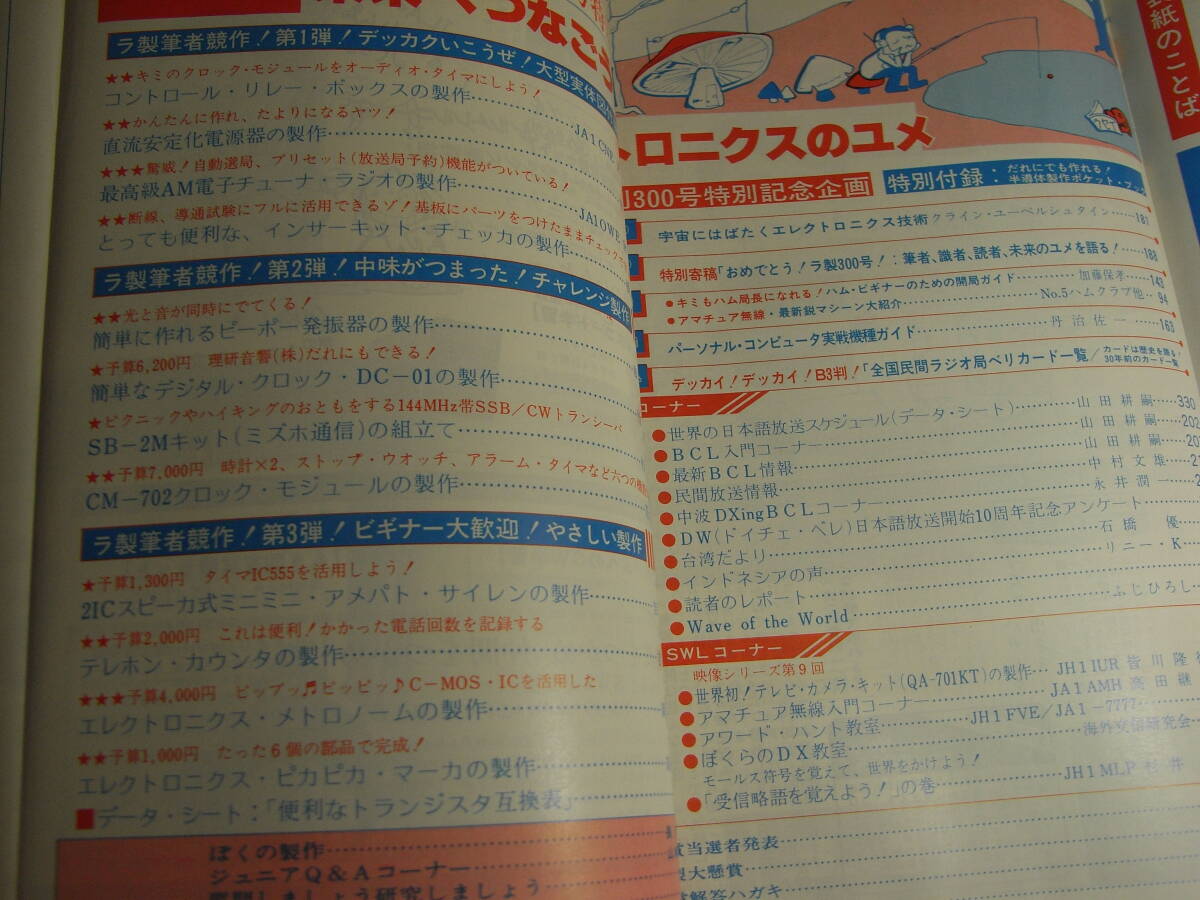 ラ製筆者競作!第1弾!デッカクいこうぜ!大型実体
★★キミのクロック・モジュールをオーディオ・タイマにしよう!
コントロール・リレー・ボックスの製作
★★かんたんに作れ、たよりになるヤツ!
直流安定化電源器の製作
★★★驚威!自動選局、プリセット(放送局予約)機能がついている!
最高級AM電子チューナ・ラジオの製作
★★断線、導通試験にフルに活用できるゾ!基板にパーツをつけたままチェック
とっても便利な、インサーキット・チェッカの製作
ラ製筆者競作!第2弾!中味がつまった!チャレンジ製作
★★光と音が同時にでてくる!
簡単に作れるピーポー発振器の製作
★予算6,200円 理研音響(株)だれにもできる!
簡単なデジタル・クロック・DC-01の製作
★ピクニックやハイキングのおともをする144MHz帯SSB/CWトランシーバ
SB-2Mキット(ミズホ通信)の組立て
★★予算7,000円 時計×2、ストップ・ウオッチ、アラーム・タイマなど六つの機能
CM-702クロック・モジュールの製作
ラ製筆者競作!第3弾!ビギナー大歓迎!やさしい製作
★予算1,300円 タイマIC555を活用しよう!
2ICスピーカ式ミニミニ・アメパト・サイレンの製作
★★予算2,000円 これは便利!かかった電話回数を記録する
テレホン・カウンタの製作
★★★予算4,000円 ピップッ♬ピッピッ♪C-MOS・ICを活用した
エレクトロニクス・メトロノームの製作
★★予算1,000円 たった6個の部品で完成!
エレクトロニクス・ピカピカ・マーカの製作
■データ・シート:「便利なトランジスタ互換表」
ぼくの製作
ジュニアQ&Aコーナー
研究しましょう
トロニクスのユメ
300号特別記念企画 特別付録: だれにでも作れる!半導体製作ポケット・ブック
宇宙にはばたくエレクトロニクス技術 クライン・ユーベルシュタイン 181
特別寄稿「おめでとう!ラ製300号!:筆者、識者、読者、未来のユメを語る! 188
●キミもハム局長になれる!ハム・ビギナーのための開局ガイド 加藤保孝 143
●アマチュア無線・最新鋭マシーン大紹介 No.5ハムクラブ他 94
パーソナル・コンピュータ実戦機種ガイド 丹治佐一 163
デッカイ!デッカイ!B3判!「全国民間ラジオ局ベリカード一覧 カードは歴史を語る!30年前のカード一覧
コーナー
●世界の日本語放送スケジュール(データ・シート) 山田耕嗣 330
●BCL入門コーナー 山田耕嗣 202
●最新BCL情報 山田耕嗣
●民間放送情報 中村文雄
●中波DXingBCLコーナー 永井潤一
●DW(ドイチェ・ベレ)日本語放送開始10周年記念アンケート
●台湾だより 石橋優
●インドネシアの声 リニー・K
●読者のレポート
●Wave of the World ふじひろし
SWLコーナー
映像シリーズ第9回
●世界初!テレビ・カメラ・キット(QA-701KT)の製作 JH1IUR 皆川隆
●アマチュア無線入門コーナー JA1AMH 高田継
●アワード・ハント教室 JH1FVE/JA1-7777
●ぼくらのDX教室 海外交信研究会
モールス符号を覚えて、世界をかけよう!
●「受信略語を覚えよう!」の巻 JH1MLP 杉井
当選者発表
大懸賞
解答ハガキ
紙のことば